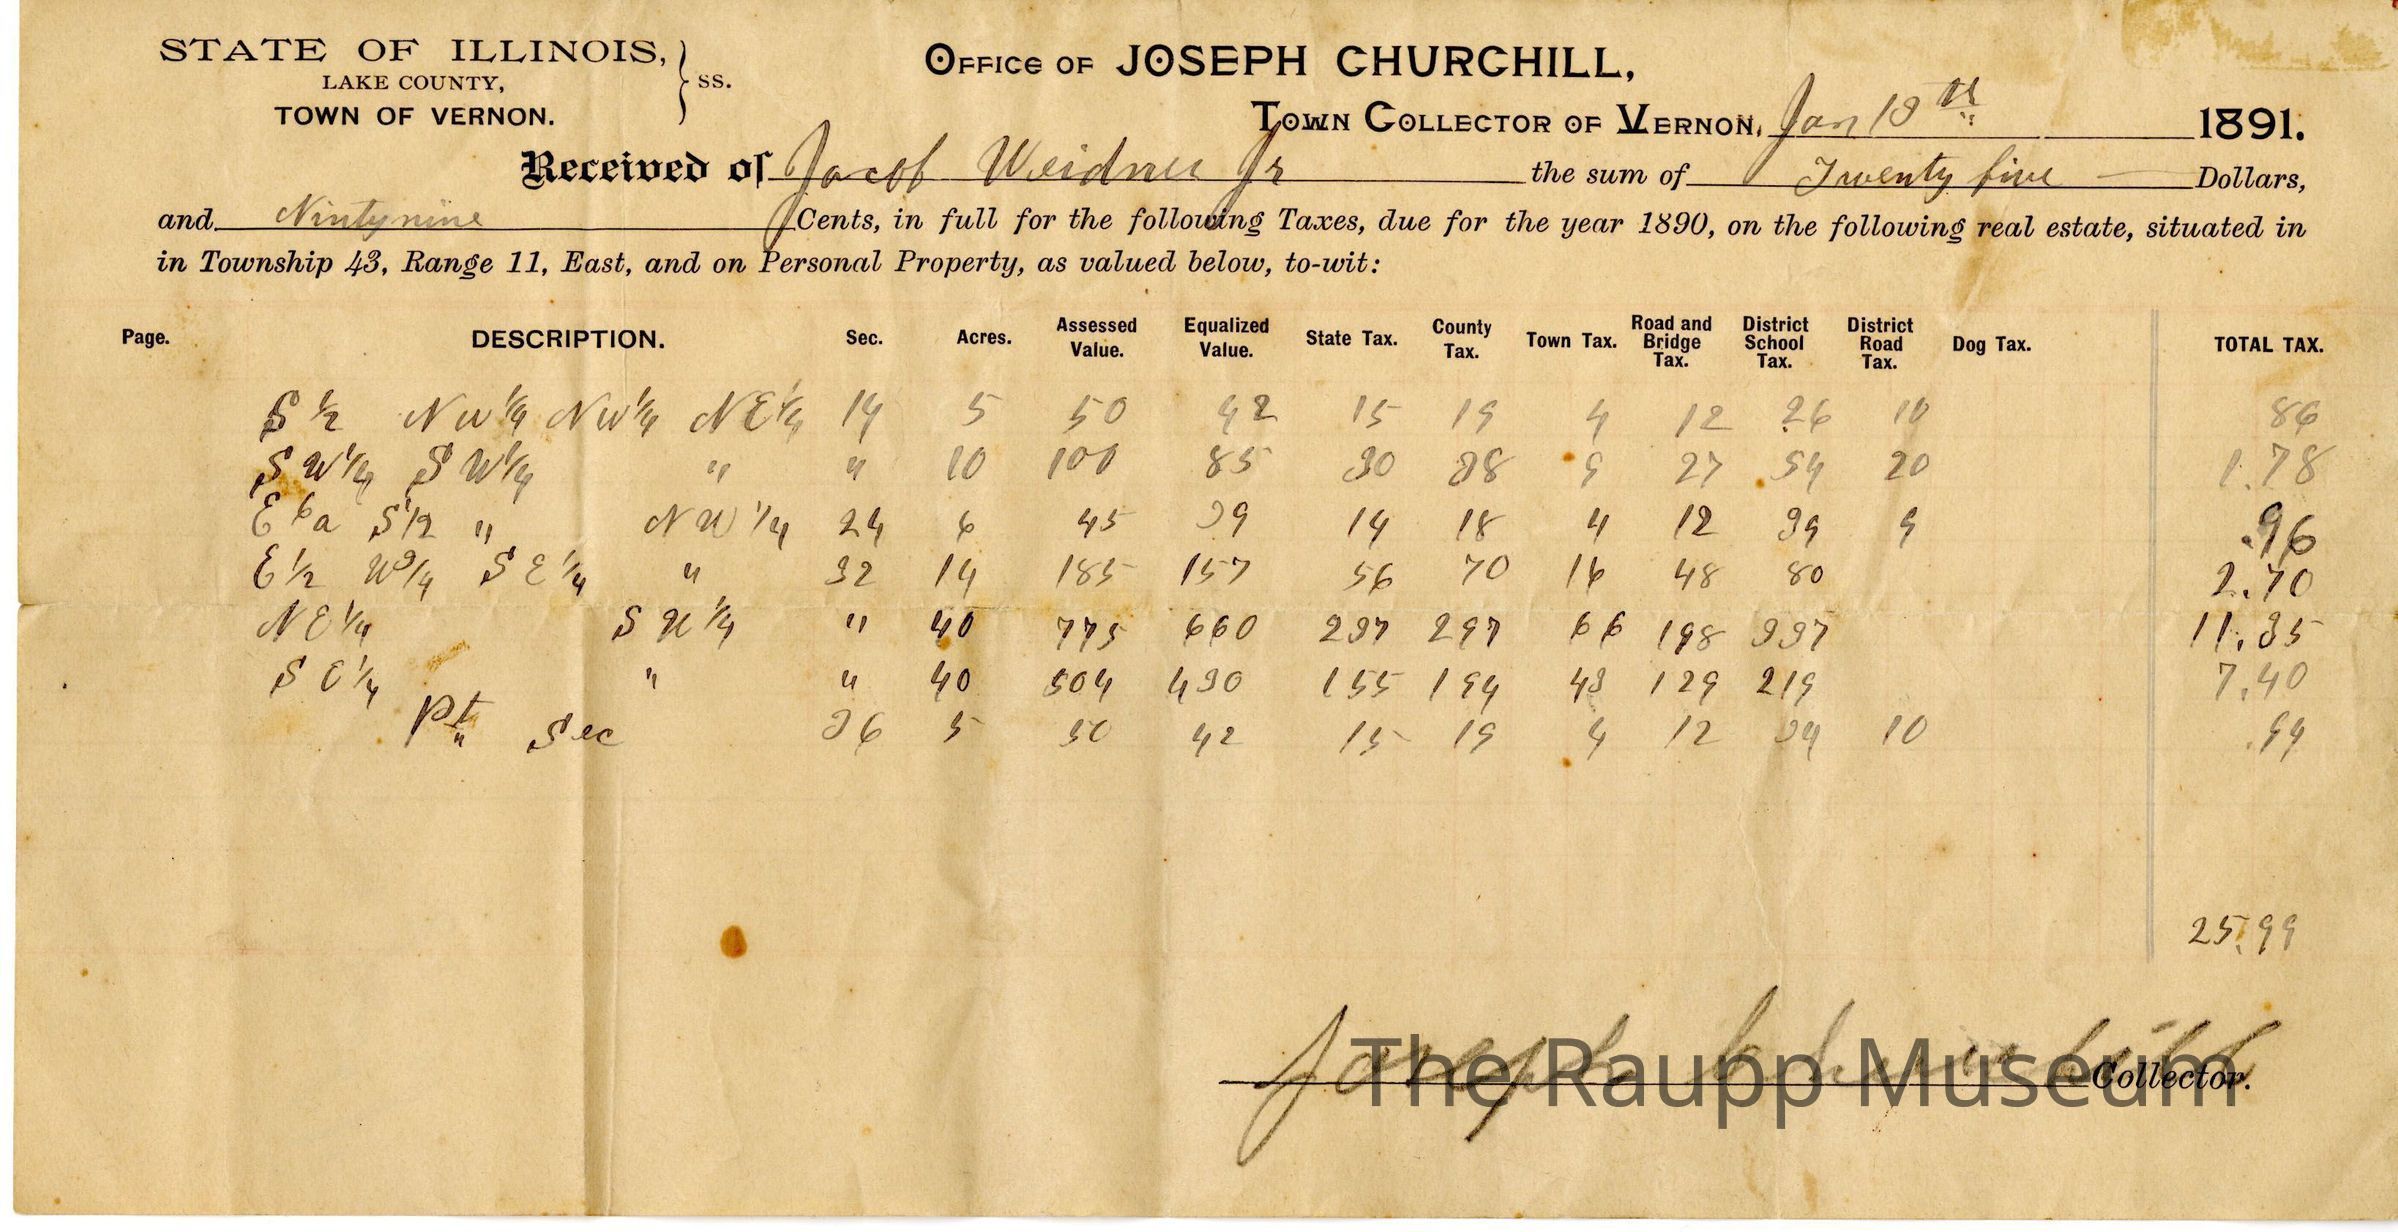 STATE OF ILLINOIS,
LAKE COUNTY,
TOWN OF VERNON.
} ss.
OFFICE OF JOSEPH CHURCHILL,
TOWN COLLECTOR OF VERNON, Jan 1891.
Received of Jacob Weidner Jr the sum of Twenty five Dollars,
and Nintynine Cents, in full for the following Taxes, due for the year 1890, on the following real estate, situated in
in Township 43, Range 11, East, and on Personal Property, as valued below, to-wit:
Page. DESCRIPTION. Sec. Acres. Assessed Value. Equalized Value. State Tax. County Tax. Town Tax. Road and Bridge Tax. District School Tax. District Road Tax. Dog Tax. TOTAL TAX.
S 1/2 NW 1/4 NW 1/4 NE 1/4 14 5 50 42 15 19 4 12 26 10 86
SW 1/4 SW 1/4 " " 10 100 85 30 38 9 27 54 20 1.78
E 6 a S 1/2 " NW 1/4 24 6 45 39 14 18 4 12 39 9 .96
E 1/2 W 3/4 SE 1/4 " 32 14 185 157 56 70 16 48 80 2.70
NE 1/4 SW 1/4 " 40 775 660 237 297 66 198 337 11.35
SE 1/4 " " 40 504 430 155 194 43 129 219 7.40
Pt " Sec 36 5 50 42 15 19 4 12 34 10 .94
25.99
Joseph Churchill Collector.
The Raupp Museum